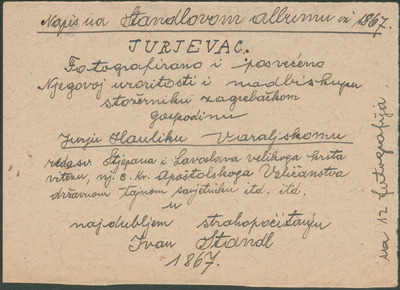 Napis na Standlovom albumu iz 1867.
JURJEVAC.
Fotografirano i posvećeno
Njegovoj uzoritosti i nadbiskupu
stožerniku zagrebačkom
gospodinu
Jurju Hauliku Varaljskomu
redova Stjepana i Leopolda velikoga krsta
vitezu, nj. C. Kr. Apoštolskoga Veličanstva
državnom tajnom savjetniku itd. itd.
u
najdubljem strahopočitanju
Ivan Standl
1867.
sa 12 fotografija